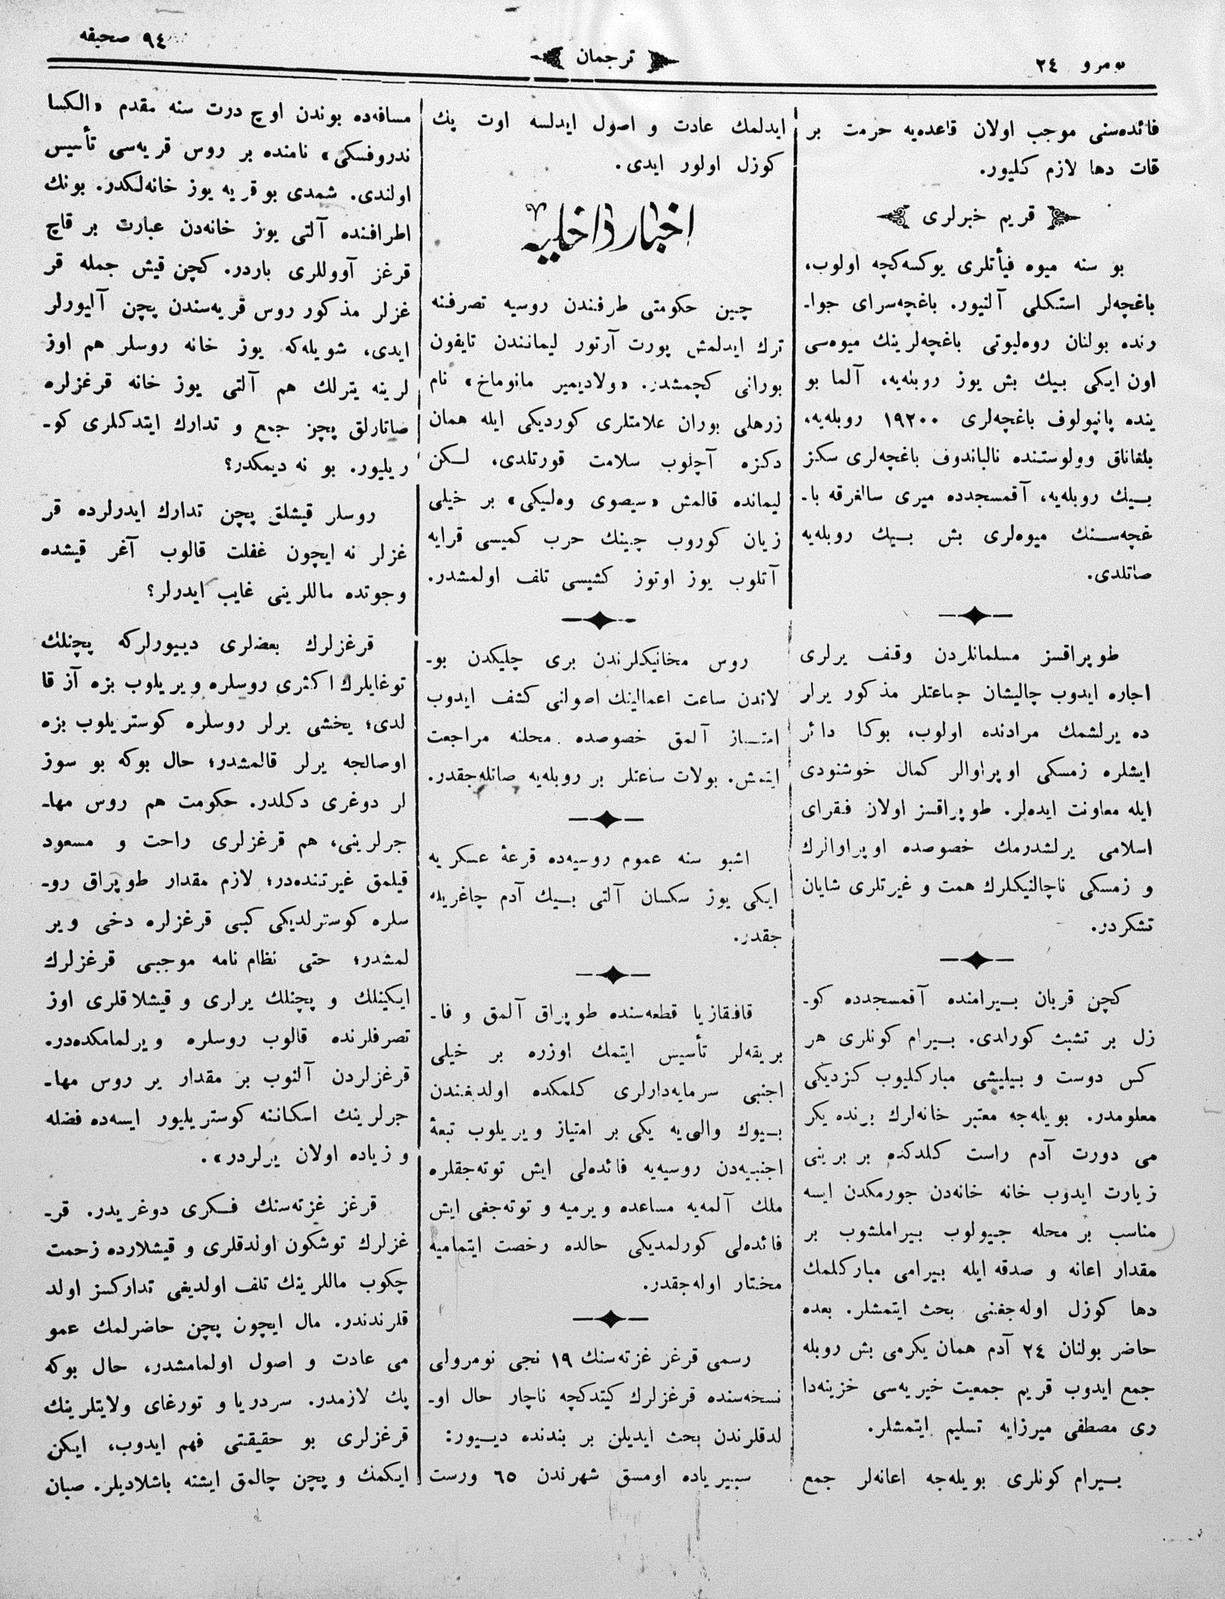 نومرو ٢٤
ترجمان
٩٤ صحيفه
فائده‌سنى موجب اولان قاعده‌يه حرمت بر
قات دها لازم كليور.
قريم خبرلرى
بو سنه ميوه فيأتلرى يوكسه‌كچه اولوب،
باغچه‌لر استكلى آلنيور. باغچه‌سراى جوا-
رنده بولنان روه‌ليوتى باغچه‌لرينك ميوه‌سى
اون ايكى بيك بش يوز روبله‌يه، آلما بو
ينده پانپولوف باغچه‌لرى ١٩٢٠٠ روبله‌يه،
بلغاناق وولوستنده نالباندوف باغچه‌لرى سكز
بيك روبله‌يه، آقمسجدده ميرى سالغرقه با-
غچه‌سنك ميوه‌لرى بش بيك روبله‌يه
صاتلدى.
طوپراقسز مسلمانلردن وقف يرلرى
اجاره ايدوب چاليشان جماعتلر مذكور يرلر
ده يرلشمك مرادنده اولوب، بوكا دائر
ايشلره زمسكى اوپراوالر كمال خوشنودى
ايله معاونت ايده‌لر. طوپراقسز اولان فقراى
اسلامى يرلشدرمك خصوصده اوپراوالرك
و زمسكى ناچالنيكلرك همت و غيرتلرى شايان
تشكردر.
كچن قربان بيرامنده آقمسجدده كو-
زل بر تشبث كورلدى. بيرام كونلرى هر
كس دوست و بيليشى مباركليوب كزديكى
معلومدر. بويله‌جه معتبر خانه‌لرك برنده يكر
مى دورت آدم راست كلدكده بر برينى
زيارت ايدوب خانه خانه‌دن جورمكدن ايسه
مناسب بر محله جيولوب بيراملشوب بر
مقدار اعانه و صدقه ايله بيرامى مباركلمك
دها كوزل اوله‌جغنى بحث ايتمشلر. بعده
حاضر بولنان ٢٤ آدم همان يكرمى بش روبله
جمع ايدوب قريم جمعيت خيريه‌سى خزينه‌دا
رى مصطفى ميرزايه تسليم ايتمشلر.
بيرام كونلرى بويله‌جه اعانه‌لر جمع
ايدلمك عادت و اصول ايدلسه اوت پك
كوزل اولور ايدى.
اخبار داخليه
چين حكومتى طرفندن روسيه تصرفنه
ترك ايدلمش پورت آرتور ليماننده تايفون
بورانى كچمشدر. «ولاديمير مانوماخ» نام
زرهلى بوران علامتلرى كورديكى ايله همان
دكزه آچلوب سلامت قورتلدى، لكن
ليمانده قالمش «سيصوى وه‌ليكى» بر خيلى
زيان كوروب چينك حرب كميسى قرايه
آتلوب يوز اوتوز كشيسى تلف اولمشدر.
روس مخانيكلرندن برى چليكدن بو-
لاندن ساعت اعمالينك اصولنى كشف ايدوب
امتياز آلمق خصوصده محلنه مراجعت
ايتمش. بولات ساعتلر بر روبله‌يه صاتله‌جقدر.
اشبو سنه عموم روسيه‌ده قرعهٔ عسكريه
ايكى يوز سكسان آلتى بيك آدم چاغريله
جقدر.
قافقازيا قطعه‌سنده طوپراق آلمق و فا-
بريقه‌لر تأسيس ايتمك اوزره بر خيلى
اجنبى سرمايه‌دارلرى كلمكده اولديغندن
بيوك والىيه يكى بر امتياز ويريلوب تبعهٔ
اجنبيه‌دن روسيه‌يه فائده‌لى ايش توته‌جقلره
ملك آلمه‌يه مساعده ويرميه و توته‌جغى ايش
فائده‌لى كورلمديكى حالده رخصت ايتماميه
مختار اوله‌جقدر.
رسمى قرغز غزته‌سنك ١٩ نجى نومرولى
نسخه‌سنده قرغزلرك كيتدكچه ناچار حال او-
لدقلرندن بحث ايديلن بر بندنده ديیور:
سيبيرياده اومسق شهرندن ٦٥ ورست
مسافه‌ده بوندن اوچ درت سنه مقدم «الكسا
ندروفسكى» نامنده بر روس قريه‌سى تأسيس
اولندى. شمدى بو قريه يوز خانه‌لكدر. بونك
اطرافنده آلتى يوز خانه‌دن عبارت بر قاچ
قرغز آووللرى باردر. كچن قيش جمله قر
غزلر مذكور روس قريه‌سندن پچن آليورلر
ايدى، شويله‌كه يوز خانه روسلر هم اوز
لرينه يترلك هم آلتى يوز خانه قرغزلره
صاتارلق پچن جمع و تدارك ايتدكلرى كو-
ريليور. بو نه ديمكدر؟
روسلر قيشلق پچن تدارك ايدرلرده قر
غزلر نه ايچون غفلت قالوب آغر قيشده
وجوتده ماللرينى غايب ايدرلر؟
قرغزلرك بعضلرى ديیورلركه پچنلك
توغايلرك اكثرى روسلره ويريلوب بزه آز قا
لدى؛ يخشى يرلر روسلره كوستريلوب بزه
اوصالجه يرلر قالمشدر؛ حال بوكه بو سوز
لر دوغرى دكلدر. حكومت هم روس مها-
جرلرينى، هم قرغزلرى راحت و مسعود
قيلمق غيرتنده‌در؛ لازم مقدار طوپراق رو-
سلره كوسترلديكى كبى قرغزلره دخى وير
لمشدر؛ حتى نظام نامه موجبى قرغزلرك
ايكينلك و پچنلك يرلرى و قيشلاقلرى اوز
تصرفلرنده قالوب روسلره ويرلمامكده‌در.
قرغزلردن آلنوب بر مقدار ير روس مها-
جرلرينك اسكاننه كوستريليور ايسه‌ده فضله
و زياده اولان يرلردر».
قرغز غزته‌سنك فكرى دوغريدر. قر-
غزلرك توشكون اولدقلرى و قيشلارده زحمت
چكوب ماللرينك تلف اولديغى تداركسز اولد
قلرندندر. مال ايچون پچن حاضرلمك عمو
مى عادت و اصول اولمامشدر، حال بوكه
پك لازمدر. سردريا و تورغاى ولايتلرينك
قرغزلرى بو حقيقتى فهم ايدوب، ايكن
ايكمك و پچن چالمق ايشنه باشلاديلر. صبان